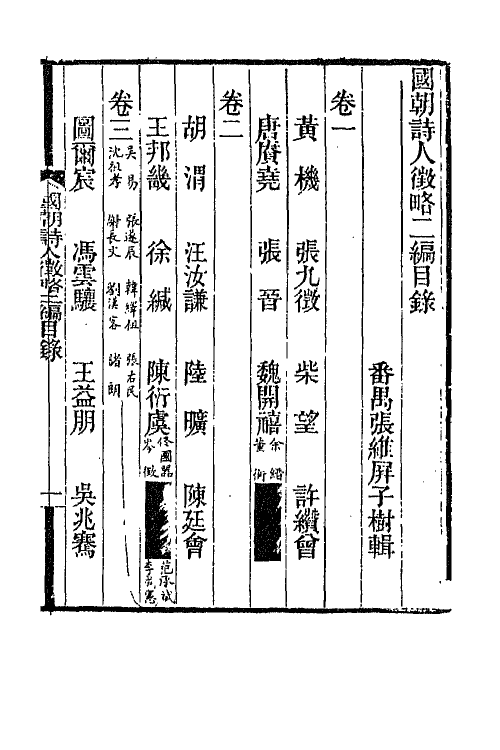 國朝詩人徵略二編目錄
番禺張維屏子樹輯
卷一
黃機 張九徵 柴望 許纘曾
唐賡堯 張晉 魏開禧 余縉 黃
卷二
胡渭 汪汝謙 陸曠 陳廷會
王邦畿 徐緘 陳衍虞 佟國器 岑徵 范承斌
卷三 吳易 張遂辰 張右民 沈 謝長文 劉漢客 諸朗
圖爾宸 馮雲驤 王益朋 吳兆騫
國朝詩人徵略二編目錄
一